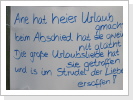 Are hat heier Urlaub
gemacht
beim Abschied hat sie
nit glacht
Die große Urlaubsliebe hat
sie getroffen
und is im Strudel der Liebe
ersoffen!